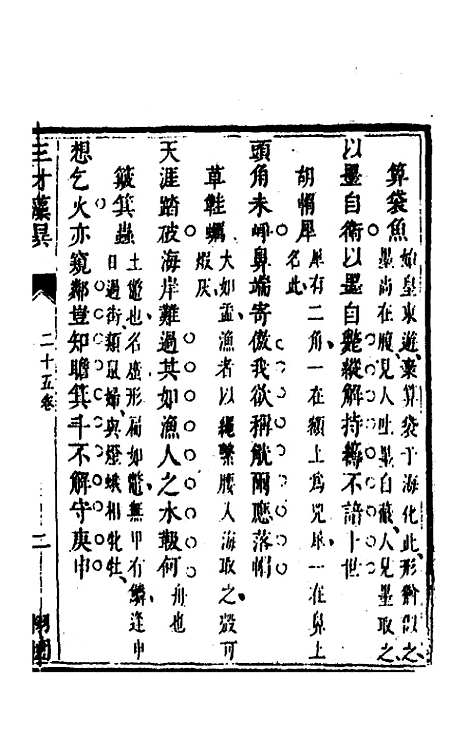 算袋魚
始皇東遊棄算袋于海化此形猶似之
墨尚在腹見人吐墨自蔽人見墨取之
以墨自衛以墨自斃縱解持籌不諳十世
胡帽犀
犀有二角一在額上為兕犀一在鼻上
名此
頭角未鼻端寄傲我欲稱觥爾應落帽
草鞋蠣
大如盂漁者以繩繫腰入海取之殼可
蝦灰
天涯踏破海岸難過其如漁人之水報何
舟也
簸箕蟲
土鱉也名形扁如鱉無甲有鱗逢申
日過街類鼠婦與燈蛾相牝牡
想乞火亦窺鄰豈知瞻箕斗不解守庚申
三才藻異
二十五卷
二